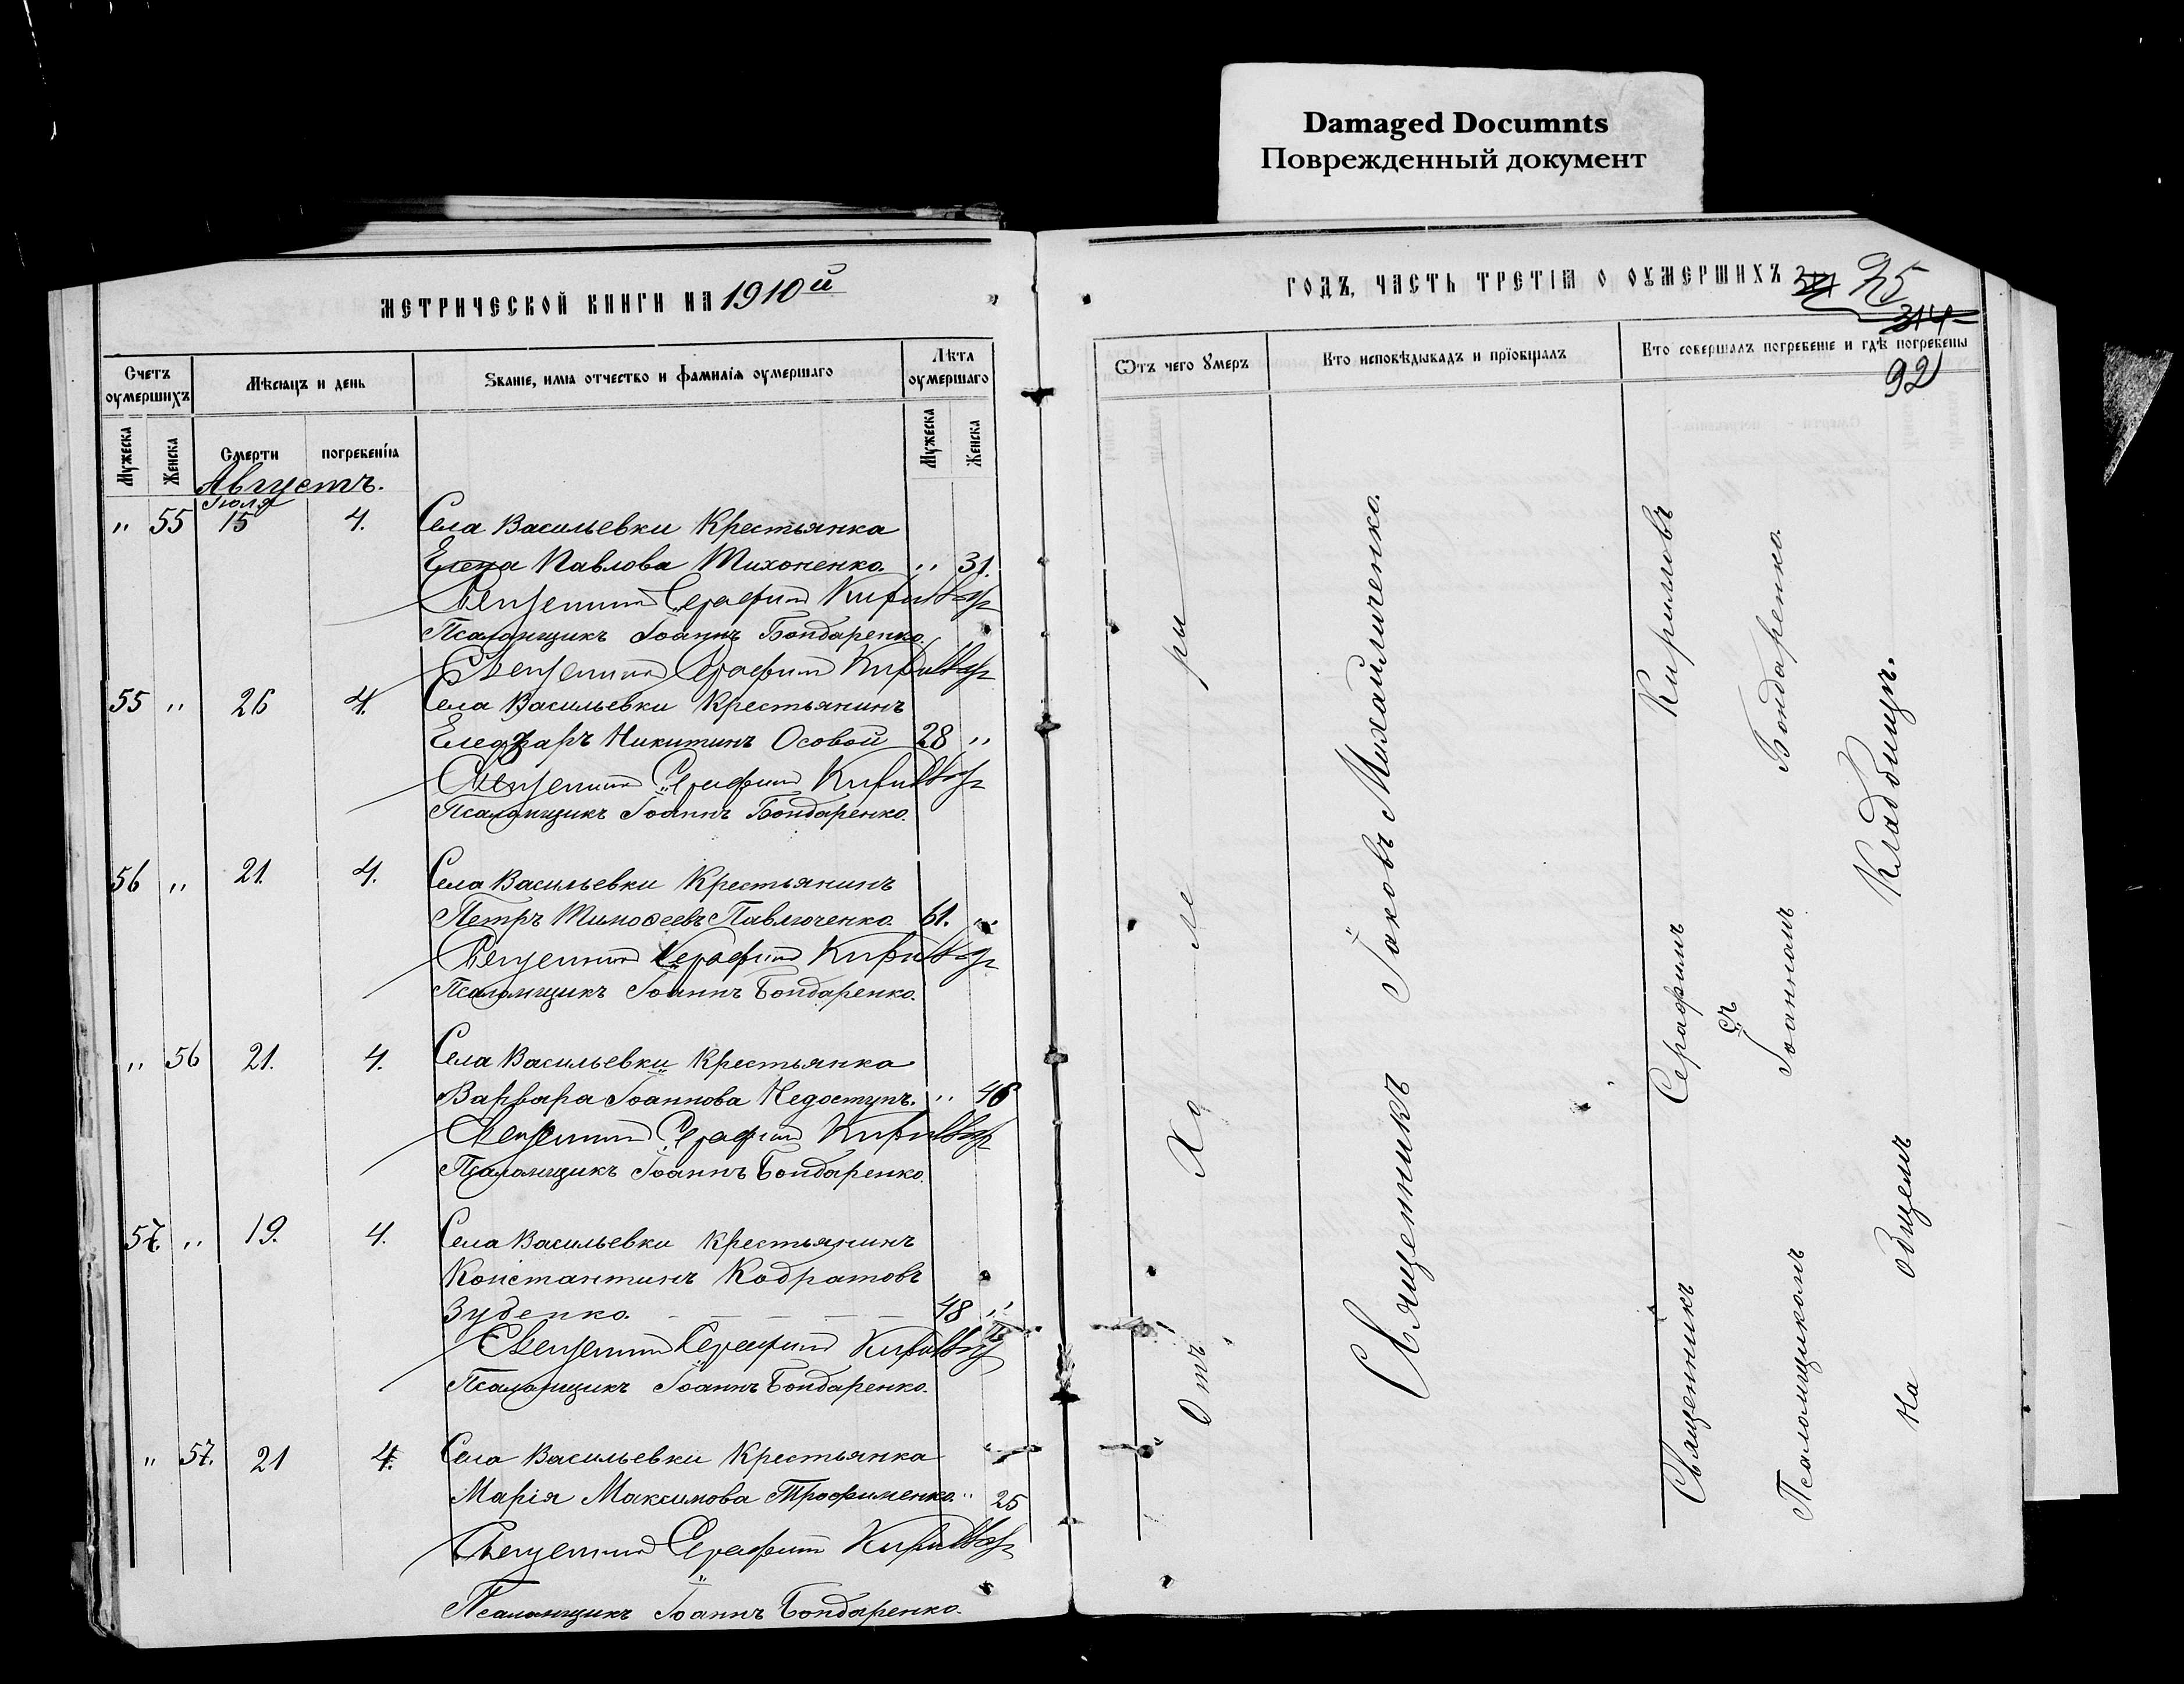 Damaged Documnts
Поврежденный документ
МЕТРИЧЕСКОЙ КНИГИ НА 1910й
Счетъ оумершихъ
Мѣсяцъ и день
Званіе, имѧ отчество и фамиліѧ оумершаго
Лѣта оумершаго
Мужеска
Женска
Смерти
погребеніѧ
Мужеска
Женска
Августъ.
Іюля
" 55 15 4. Села Васильевки Крестьянка
Елена Павлова Тихоненко. " 31.
Священникъ Серафимъ Кирилловъ
Псаломщикъ Іоаннъ Бондаренко.
Священникъ Серафимъ Кирилловъ
55 " 26 4. Села Васильевки Крестьянинъ
Елеазаръ Никитинъ Особой 28 "
Священникъ Серафимъ Кирилловъ
Псаломщикъ Іоаннъ Бондаренко.
56 " 21. 4. Села Васильевки Крестьянинъ
Петръ Тимоѳеевъ Павлюченко. 61. "
Священникъ Серафимъ Кирилловъ
Псаломщикъ Іоаннъ Бондаренко.
" 56 21. 4. Села Васильевки Крестьянка
Варвара Іоаннова Недоступъ. " 46
Священникъ Серафимъ Кирилловъ
Псаломщикъ Іоаннъ Бондаренко.
57. " 19. 4. Села Васильевки Крестьянинъ
Константинъ Кодратовъ
Зубенко. 48 "
Священникъ Серафимъ Кирилловъ
Псаломщикъ Іоаннъ Бондаренко.
" 57. 21 4. Села Васильевки Крестьянка
Марія Максимова Трофименко. " 25
Священникъ Серафимъ Кирилловъ
Псаломщикъ Іоаннъ Бондаренко.
ГОДЪ, ЧАСТЬ ТРЕТІѦ О ОУМЕРШИХЪ
95
314
92
Ѿтъ чего Ꙋмеръ
Кто исповѣдывалъ и прїобщалъ
Кто совершалъ погребеніе и гдѣ погребены
Отъ Холеры
Священникъ Іаковъ Михайличенко.
Священникъ Серафимъ Кирилловъ
съ
Псаломщикомъ Іоанномъ Бондаренко.
На общемъ Кладбищѣ.